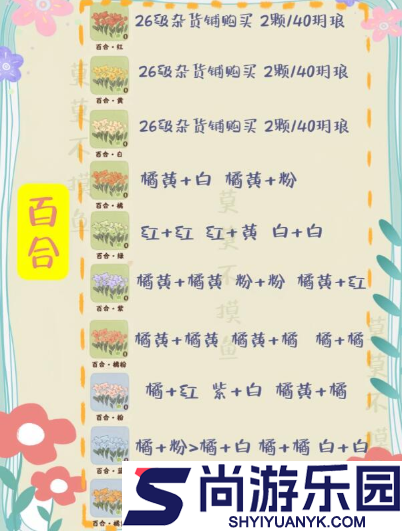 百合
百合·红 26级杂货铺购买 2颗/40玥琅
百合·黄 26级杂货铺购买 2颗/40玥琅
百合·白 26级杂货铺购买 2颗/40玥琅
百合·橘 橘黄+白 橘黄+粉
百合·绿 红+红 红+黄 白+白
百合·紫 橘黄+橘黄 粉+粉 橘黄+红
百合·橘粉 橘黄+橘黄 橘黄+橘 橘+橘
百合·粉 橘+红 紫+白 橘黄+橘
橘+粉>橘+白 橘+橘 白+白
莫莫不摸鱼
莫莫不摸鱼
尚游乐园
SHYIYUANYK.COM